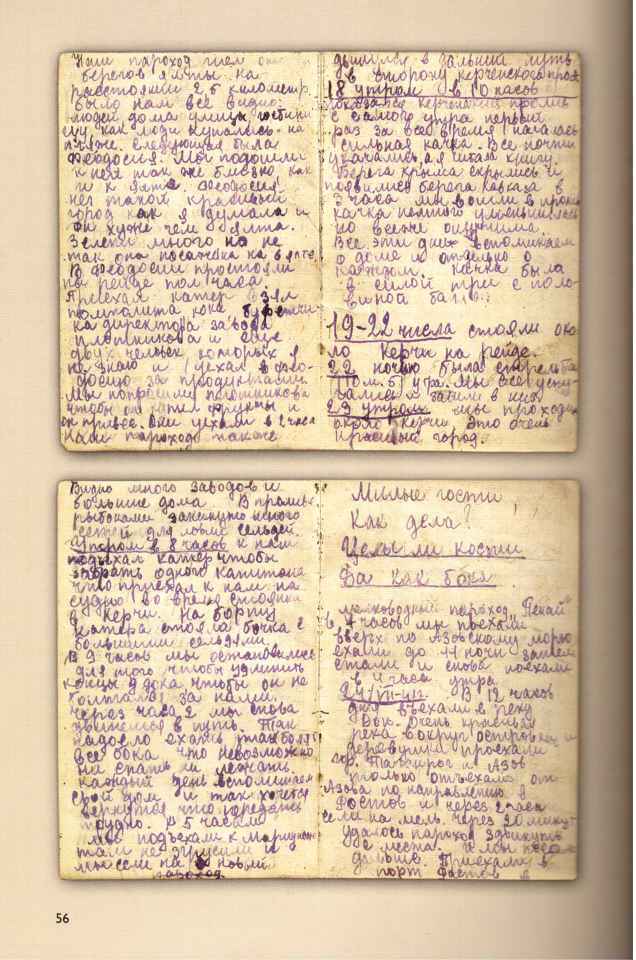 Наш пароход шел от
берегов ялты на
расстоянии 2,5 километр.
было нам всё видно:
людей дома улицы гостини
цу, как люди купались на
пляже. Следующая была
Феодосия. Мы подошли
к ней так же близко как
и к ялте. Феодосия
не такой красивый
город как я думала и
он хуже чем ялта.
Зелени много но не
так она посажена как в ялте
В Феодосии простояли
на рейде пол часа.
Приехал катер взял
помполита кока буфетчи-
ка директора завода
плотникова и ещё
двух человек которых я
не знаю и уехал в фео-
досию за продуктами.
Мы попросили плотникова
чтобы он купил фрукты и
он привёс. Они уехали в 2 часа
наш пароход также
двинулся в дальний путь
в сторону керченского прол
18 утром в 10 часов
показался керченский пролив
с самого утра первый
раз за всё время началась
сильная качка. Все почти
укачались, а я читала книгу.
Берега крыма скрылись и
появились берега кавказа в
3 часа мы вошли в пролив
качка немного уменьшилась
но всё же ощутима.
Все эти дни вспоминаем
о доме и отдельно о
каждом. качка была
в силой три с поло-
виной балла.
19-22 числа стояли око
ло керчи на рейде.
22 ночью была стрельба
утра. мы все испу-
гались
23 утром мы проходим
около керчи это очень
красивый город.
Видно много заводов и
большие дома. В проливе
рыбаками закинуто много
сетей для ловли сельдей.
Утром в 8 часов к нам
подъехал катер чтобы
забрать одного капитана
что приехал к нам на
судно во время стоянки
в керчи. На борту
катера стояла бочка с
большими сельдями.
В 9 часов мы остановились
для того чтобы удлинить
концы у дока чтобы он не
болтался за нами.
через часа 2 мы снова
двинемся в путь. Так
надоело ехать, так болят
все бока что невозможно
ни спать ни лежать.
каждый день вспоминаем
свой дом и так хочется
вернуться что передать
трудно. В 5 часов
мы подъехали к Мариуполю
там не грузили и
мы сели на новый
пароход.
Милые гости
Как дела?
Целы ли кости
Ба как бока
мелководный пароход
в 7 часов мы поехали
вверх по Азовскому морю
ехали до 11 ночи затем
стали и снова поехали
в 4 часа утра.
24/VII-41г. В 12 часов
дня въехали в реку
Дон. Очень красивая
река вокруг островки и
деревушки проехали
гор. Таганрог и Азов
только отъехали от
Азова по направлению в
Ростов и через 2 часа
сели на мель. через 20 мину-
удалось пароход сдвинуть
с места. и мы поехали
дальше. Приехали в
порт Ростов в
56